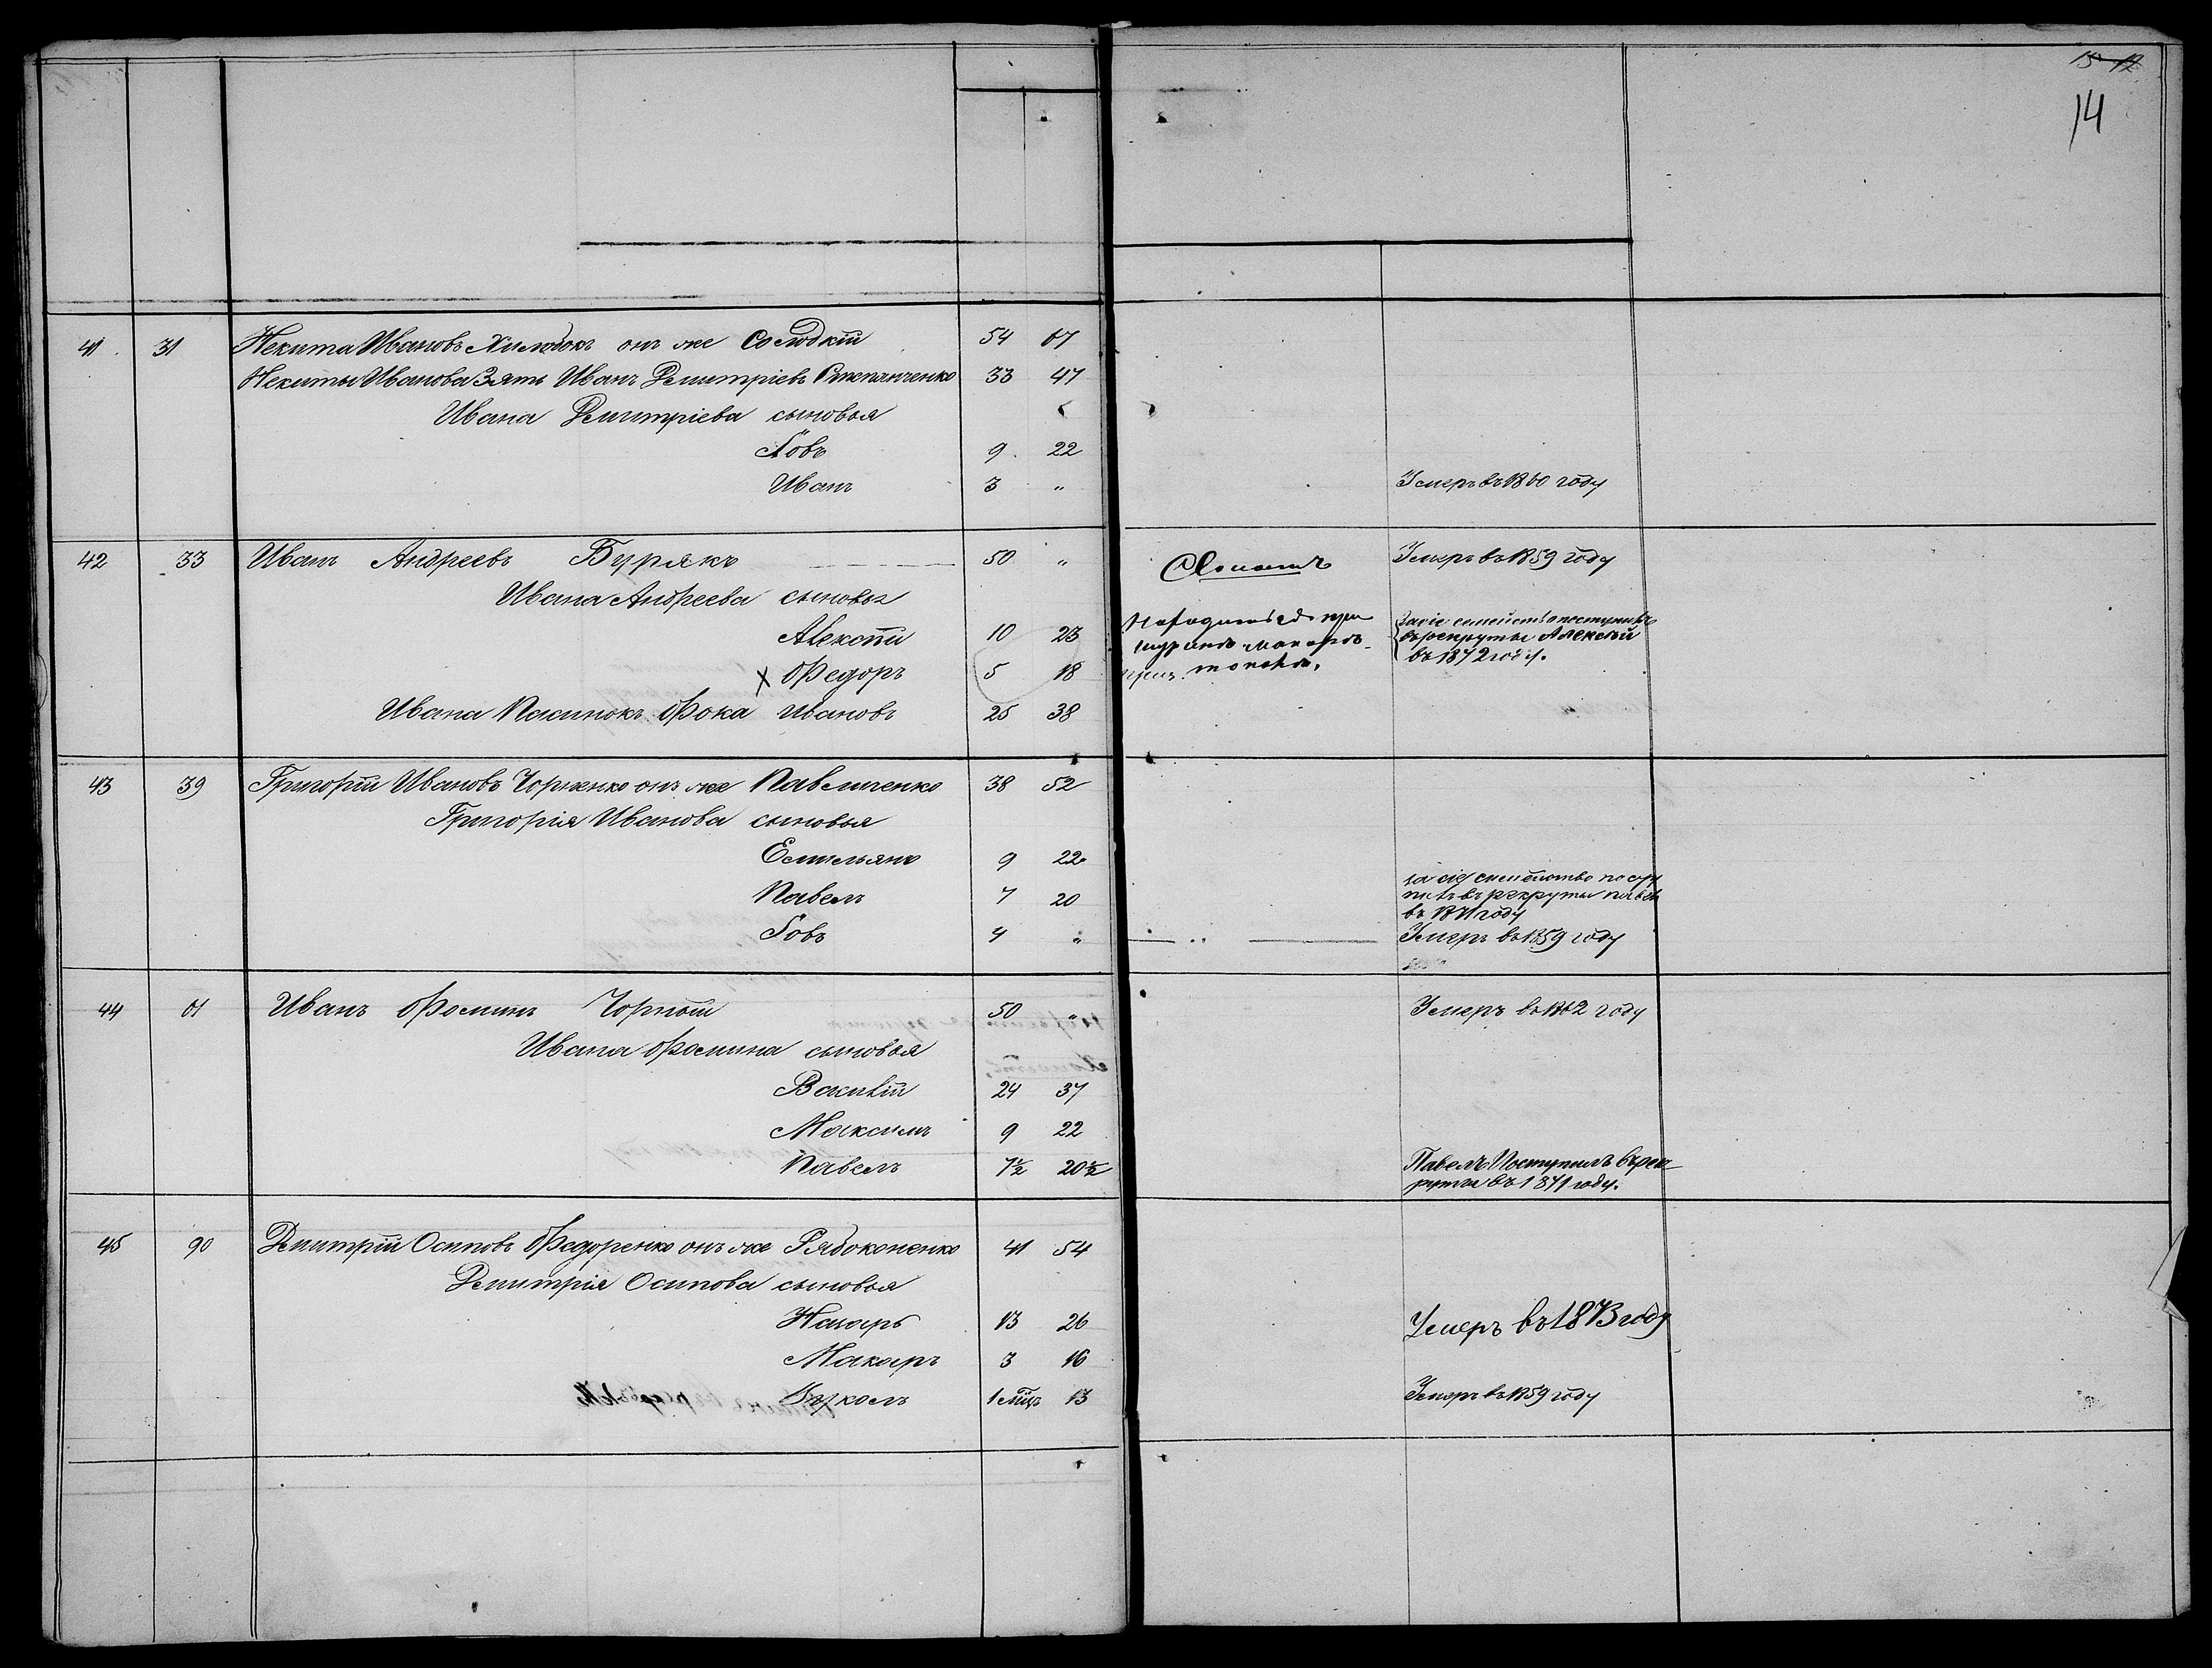 15 12
14
41. 31 Некита Ивановъ онъ же Солодкій 54 67
Некиты Иванова Зять Иванъ Демитріевъ Степанченко 33 47
Ивана Демитріева сыновья
Іовъ 9. 22
Иванъ 3 „ Умеръ въ 1860 году
42 33 Иванъ Андреевъ Бурякъ 50 „ Умеръ въ 1859 году
Ивана Андреева сыновья
Алексѣй 10 23 За сіе семейство поступилъ
въ рекруты Алексѣй
въ 1872 году.
х Федоръ 5 18
Ивана Пасинокъ Фока Ивановъ 25 38
43 39 Григорій Ивановъ Чорненко онъ же Павличенко 38 52
Григорія Иванова сыновья
Емельянъ 9 22
Павелъ 7 20 за сіе семейство посту
пилъ въ рекруты павелъ
въ 1871 году
Іовъ 4 „ Умеръ въ 1859 году
44 61 Иванъ Фоминъ Чорный 50 „ Умеръ въ 1862 году
Ивана Фомина сыновья
Василій 24 37
Максимъ 9 22
Павелъ 7½ 20½ Павелъ Поступилъ въ рек
руты въ 1871 году.
45 90 Демитрій Осиповъ Федоренко онъ же Рябоконенко 41 54
Демитрія Осипова сыновья
Назаръ 13 26 Умеръ въ 1873 году
Макаръ 3 16
1 мѣць 13 Умеръ въ 1859 году